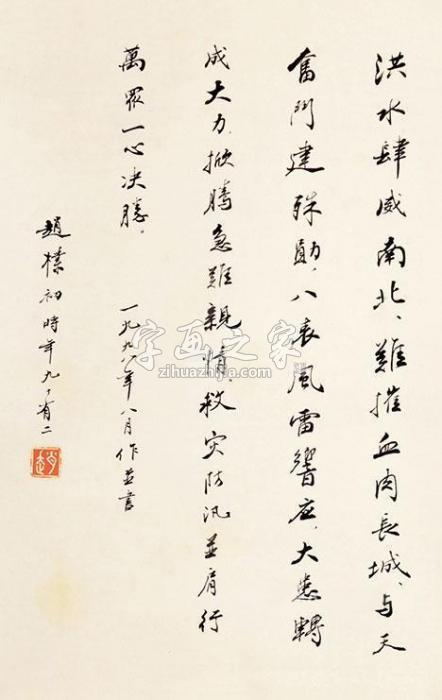 洪水肆威南北、難摧血肉長城、与天
奮鬥建殊勛、八表風雷響应、大悲轉
成大力、掀騰急難親情、救灾防汛並肩行
萬眾一心决勝。
一九九八年八月作並書
趙樸初時年九十有二
字画之家
www.zihuazhijia.com